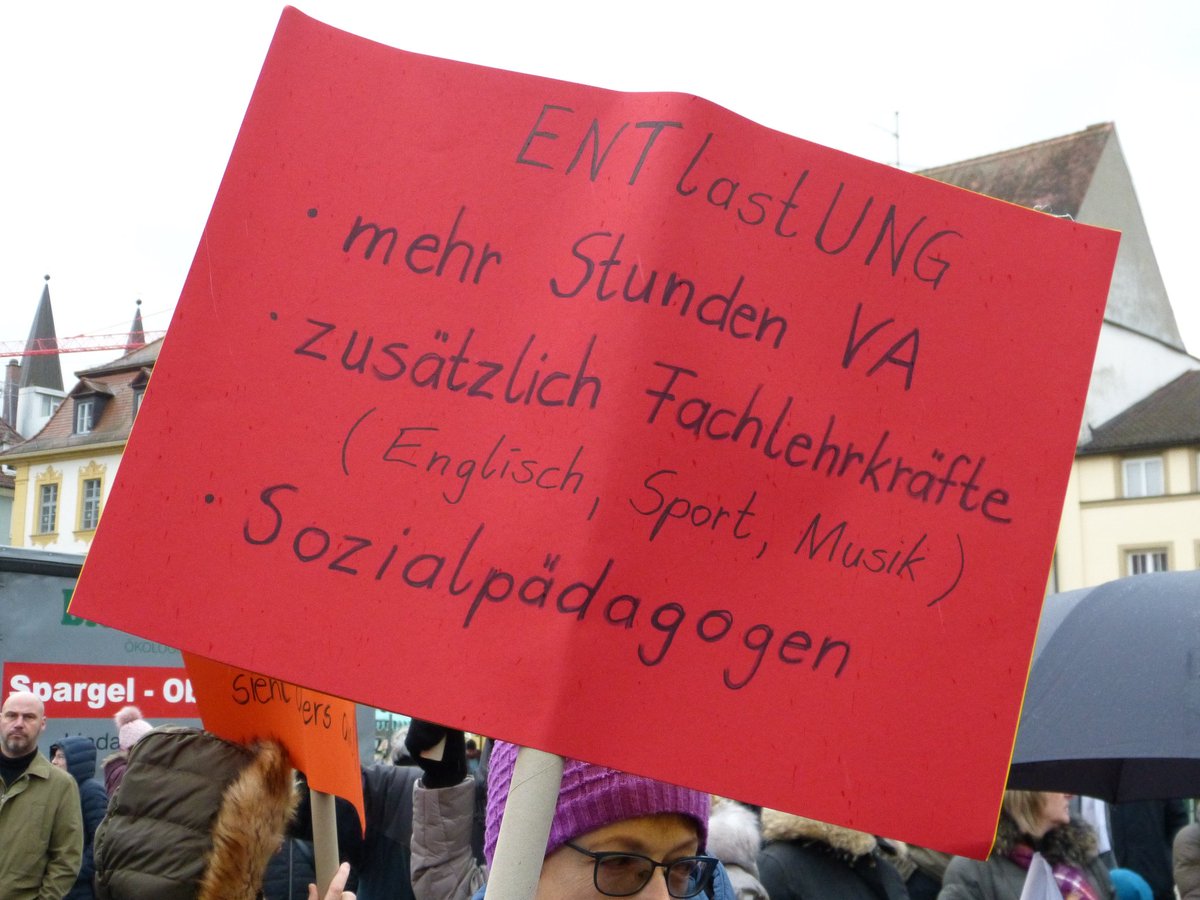 ENTlastUNG
· mehr Stunden VA
· zusätzlich Fachlehrkräfte
(Englisch, Sport, Musik)
· Sozialpädagogen
Spargel - Ob
sieht